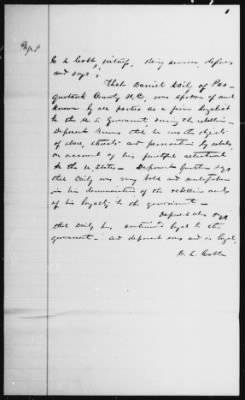 G. L. Cobb, being sworn deposes
and says;
That Daniel Daily of Pas
quotank County N.C., was spoken of and
known by all parties as a firm loyalist
to the U. S. Government, during the rebellion -
Deponent knows that he was the object
of abuse, threats and persecution by rebels,
on account of his faithful attachment
to the U. States - Deponent further says
that Daily was very bold and outspoken
in his denunciation of the rebellion and
of his loyalty to the government -
Deponent also says
that Daily has continued loyal to the
government - and deponent was and is loyal.
G. L. Cobb